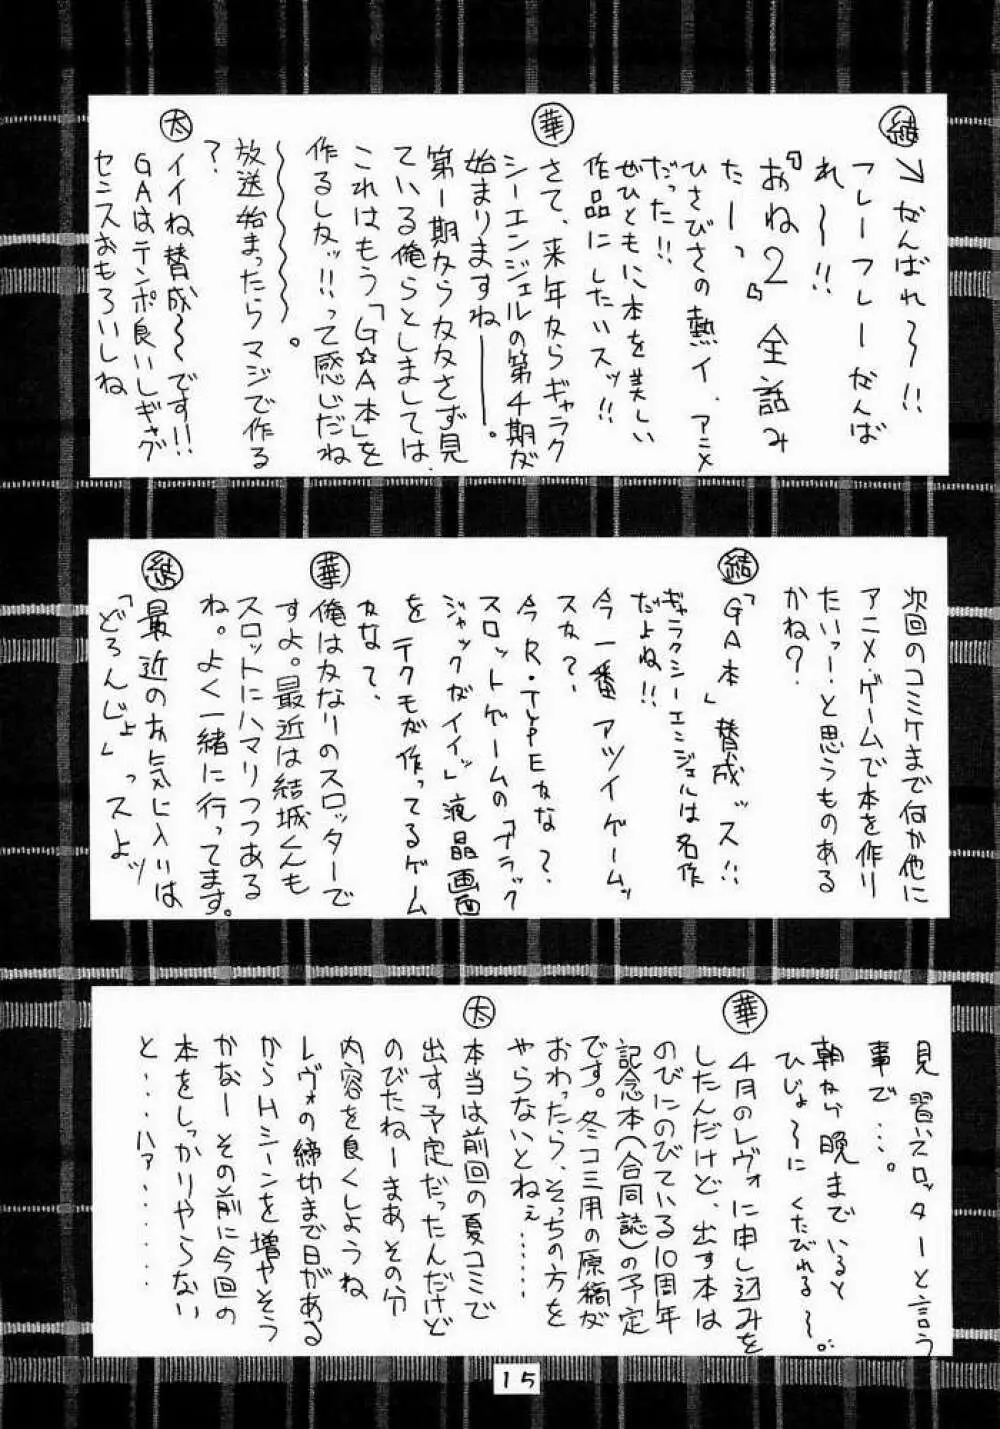 結
→がんばれ〜!!
フレーフレーがんば
れ〜!!
『おね2』全話み
たーっ
ひさびさの熱イ、アニメ
だった!!
ぜひともに本を美しい
作品にしたいスッ!!
華
さて、来年からギャラク
シーエンジェルの第4期が
始まりますね―――。
第一期からかかさず見
ている俺らとしましては、
これはもう「G☆A本」を
作るしかッ!!って感じだね
〜〜〜〜〜〜。
放送始まったらマジで作る
?
太
イイね賛成〜〜です!!
GAはテンポ良いしギャグ
センスおもろいしね
次回のコミケまで何か他に
アニメ・ゲームで本を作り
たいっー!と思うものある
かね?
結
「GA本」賛成ッス!!
ギャラクシーエンジェルは名作
だよね!!
今一番アツイゲームッ
スか?、
今R・TYPEかな?、
スロットゲームの「ブラック
ジャックがイイッ」液晶画面
を テクモが作ってるゲーム
かな て、
華
俺はかなりのスロッターで
すよ。最近は結城くんも
スロットにハマりつつある
ね。よく一緒に行ってます。
結
最近のお気に入りは
「どろんじょ」っスよッ
見習いスロッターと言う
事で…。
朝から晩までいると
ひじょ〜に くたびれる〜。
華
4月のレヴォに申し込みを
したんだけど、出す本は
のびにのびている10周年
記念本(合同誌)の予定
です。冬コミ用の原稿が
おわったら、そっちの方を
やらないとねぇ……
太
本当は前回の夏コミで
出す予定だったんだけど
のびたねーまあその分
内容を良くしようね
レヴォの締切まで日がある
からHシーンを増やそう
かなー その前に今回の
本をしっかりやらない
と……ハァ……
15